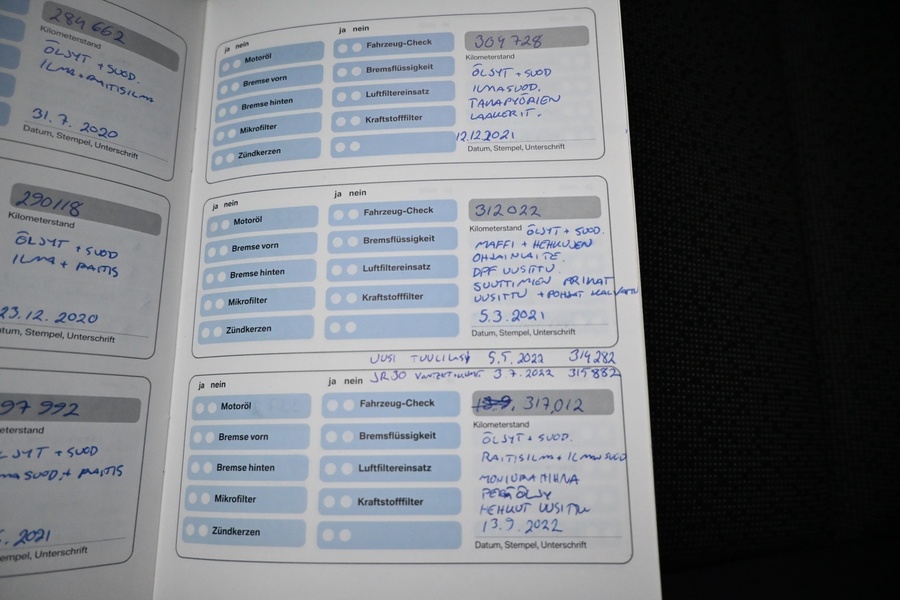 284 662
Kilometerstand
ÖLJYT + SUOD.
ILMA + RAITISILMA
31.7.2020
Datum, Stempel, Unterschrift
290118
Kilometerstand
ÖLJYT + SUOD
ILMA + RAITIS
23.12.2020
Datum, Stempel, Unterschrift
97 992
ÖLJYT + SUOD
SUOD. + RAITIS
2021
Stempel, Unterschrift
ja nein
ja nein
Motoröl
Bremse vorn
Bremse hinten
Mikrofilter
Zündkerzen
Fahrzeug-Check
Bremsflüssigkeit
Luftfiltereinsatz
Kraftstofffilter
304 728
Kilometerstand
ÖLJYT + SUOD
ILMASUOD.
TAKAPYÖRIEN
LAAKERIT.
12.12.2021
Datum, Stempel, Unterschrift
ja nein
ja nein
Motoröl
Bremse vorn
Bremse hinten
Mikrofilter
Zündkerzen
Fahrzeug-Check
Bremsflüssigkeit
Luftfiltereinsatz
Kraftstofffilter
312022
Kilometerstand
ÖLJYT + SUOD.
MAFFI + HEHKUJEN
OHJAINLAITE.
DPF UUSITTU
SUUTTIMIEN PRIKAT
UUSITTU + POHJAT
5.3.2021
Datum, Stempel, Unterschrift
UUSI TUULILASI 5.5.2022 314282
3.7.2022 315882
ja nein
ja nein
Motoröl
Bremse vorn
Bremse hinten
Mikrofilter
Zündkerzen
Fahrzeug-Check
Bremsflüssigkeit
Luftfiltereinsatz
Kraftstofffilter
317,012
Kilometerstand
ÖLJYT + SUOD.
RAITISILMA + ILMANSUOD
MONIURAHIHNA
PERÄÖLJY
HEHKUT UUSITTU
13.9.2022
Datum, Stempel, Unterschrift